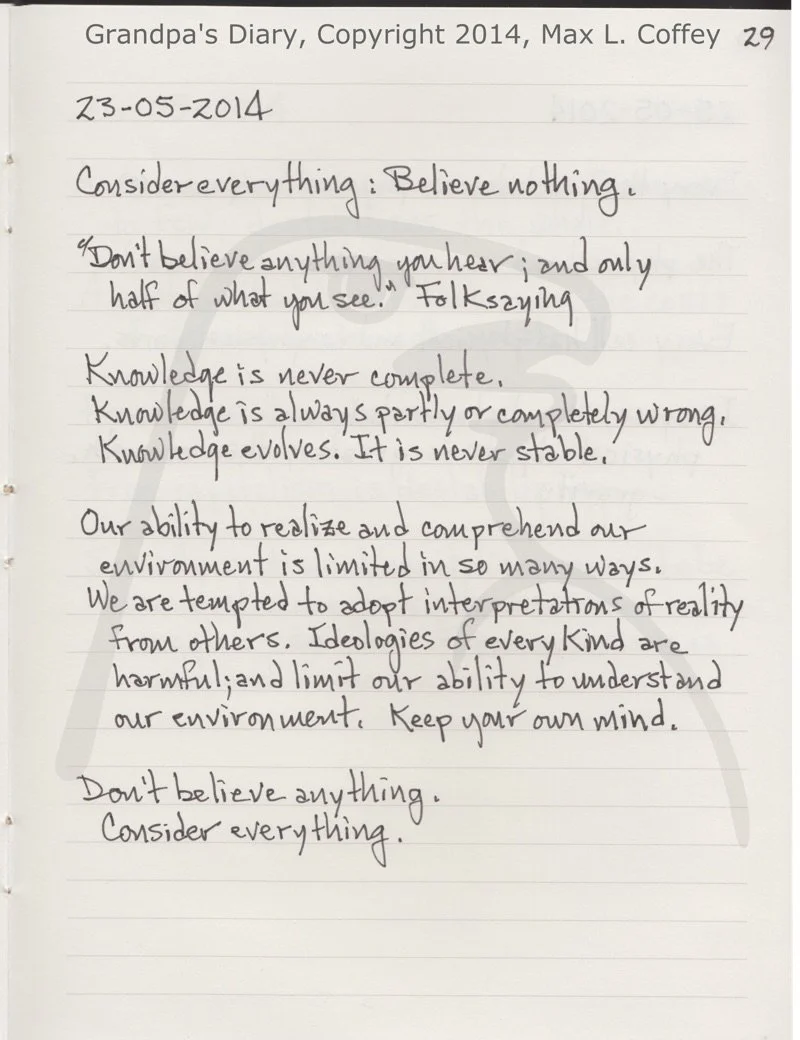 Grandpa's Diary, Copyright 2014, Max L. Coffey 29
23-05-2014
Consider everything: Believe nothing.
"Don't believe anything you hear; and only
half of what you see." Folksaying
Knowledge is never complete.
Knowledge is always partly or completely wrong.
Knowledge evolves. It is never stable.
Our ability to realize and comprehend our
environment is limited in so many ways.
We are tempted to adopt interpretations of reality
from others. Ideologies of every kind are
harmful; and limit our ability to understand
our environment. Keep your own mind.
Don't believe anything.
Consider everything.